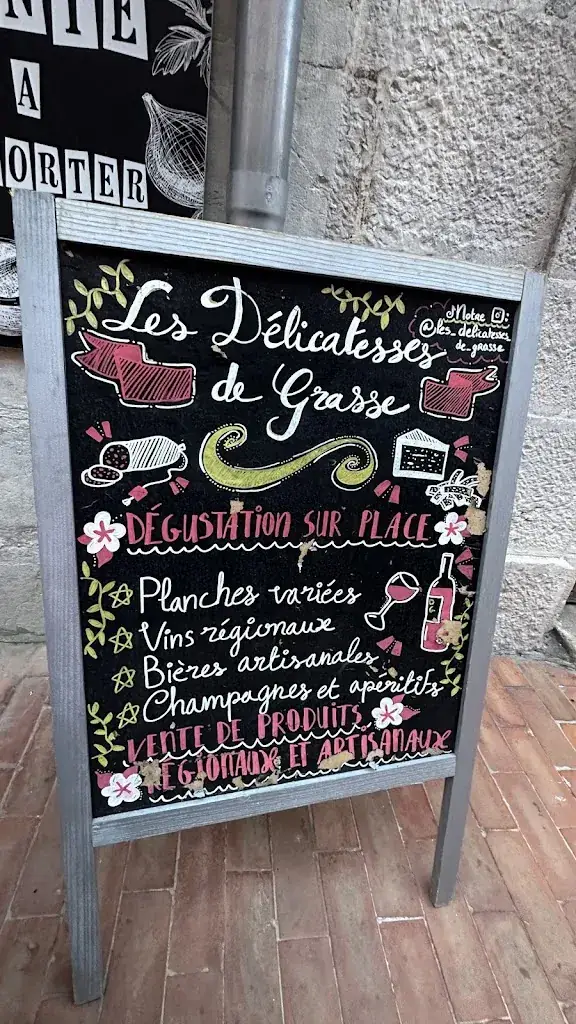 A
ORTER
Les Délicatesses
de Grasse
Notre
@les_délicatesses_
de_grasse
DÉGUSTATION SUR PLACE
Planches variées
Vins régionaux
Bières artisanales
Champagnes et apéritifs
VENTE DE PRODUITS
RÉGIONAUX ET ARTISANAUX